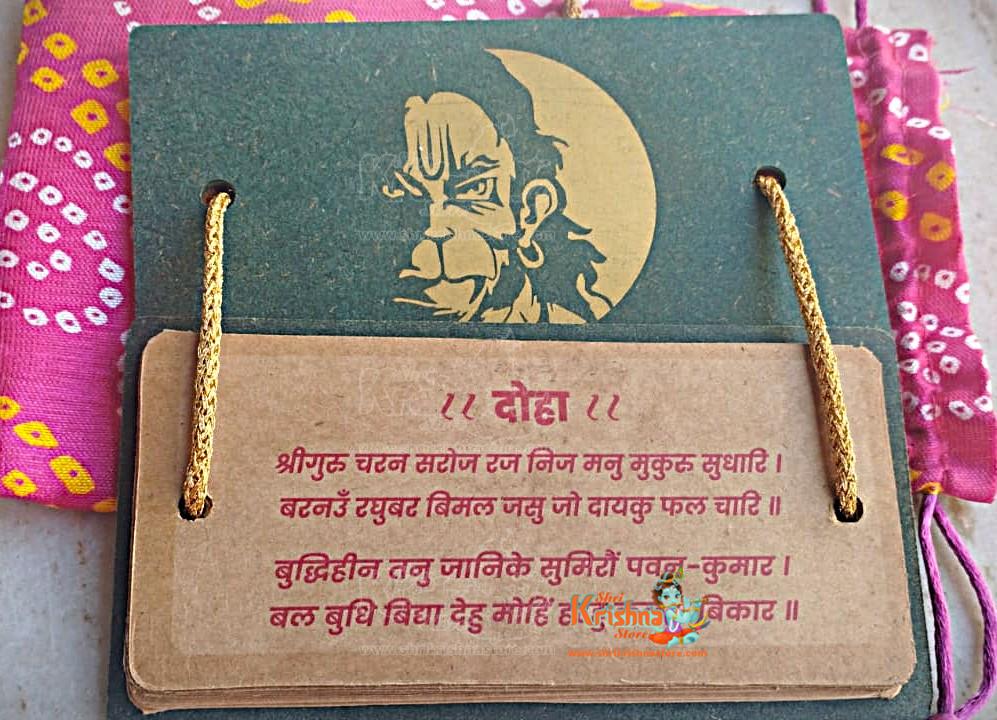 ᠁ दोहा ᠁
श्रीगुरु चरन सरोज रज निज मनु मुकुरु सुधारि ।
बरनउँ रघुबर बिमल जसु जो दायकु फल चारि ॥
बुद्धिहीन तनु जानिके सुमिरौं पवन-कुमार ।
बल बुधि बिद्या देहु मोहिं बिकार ॥
Shri
Krishna
Store
www.shrikrishnastore.com